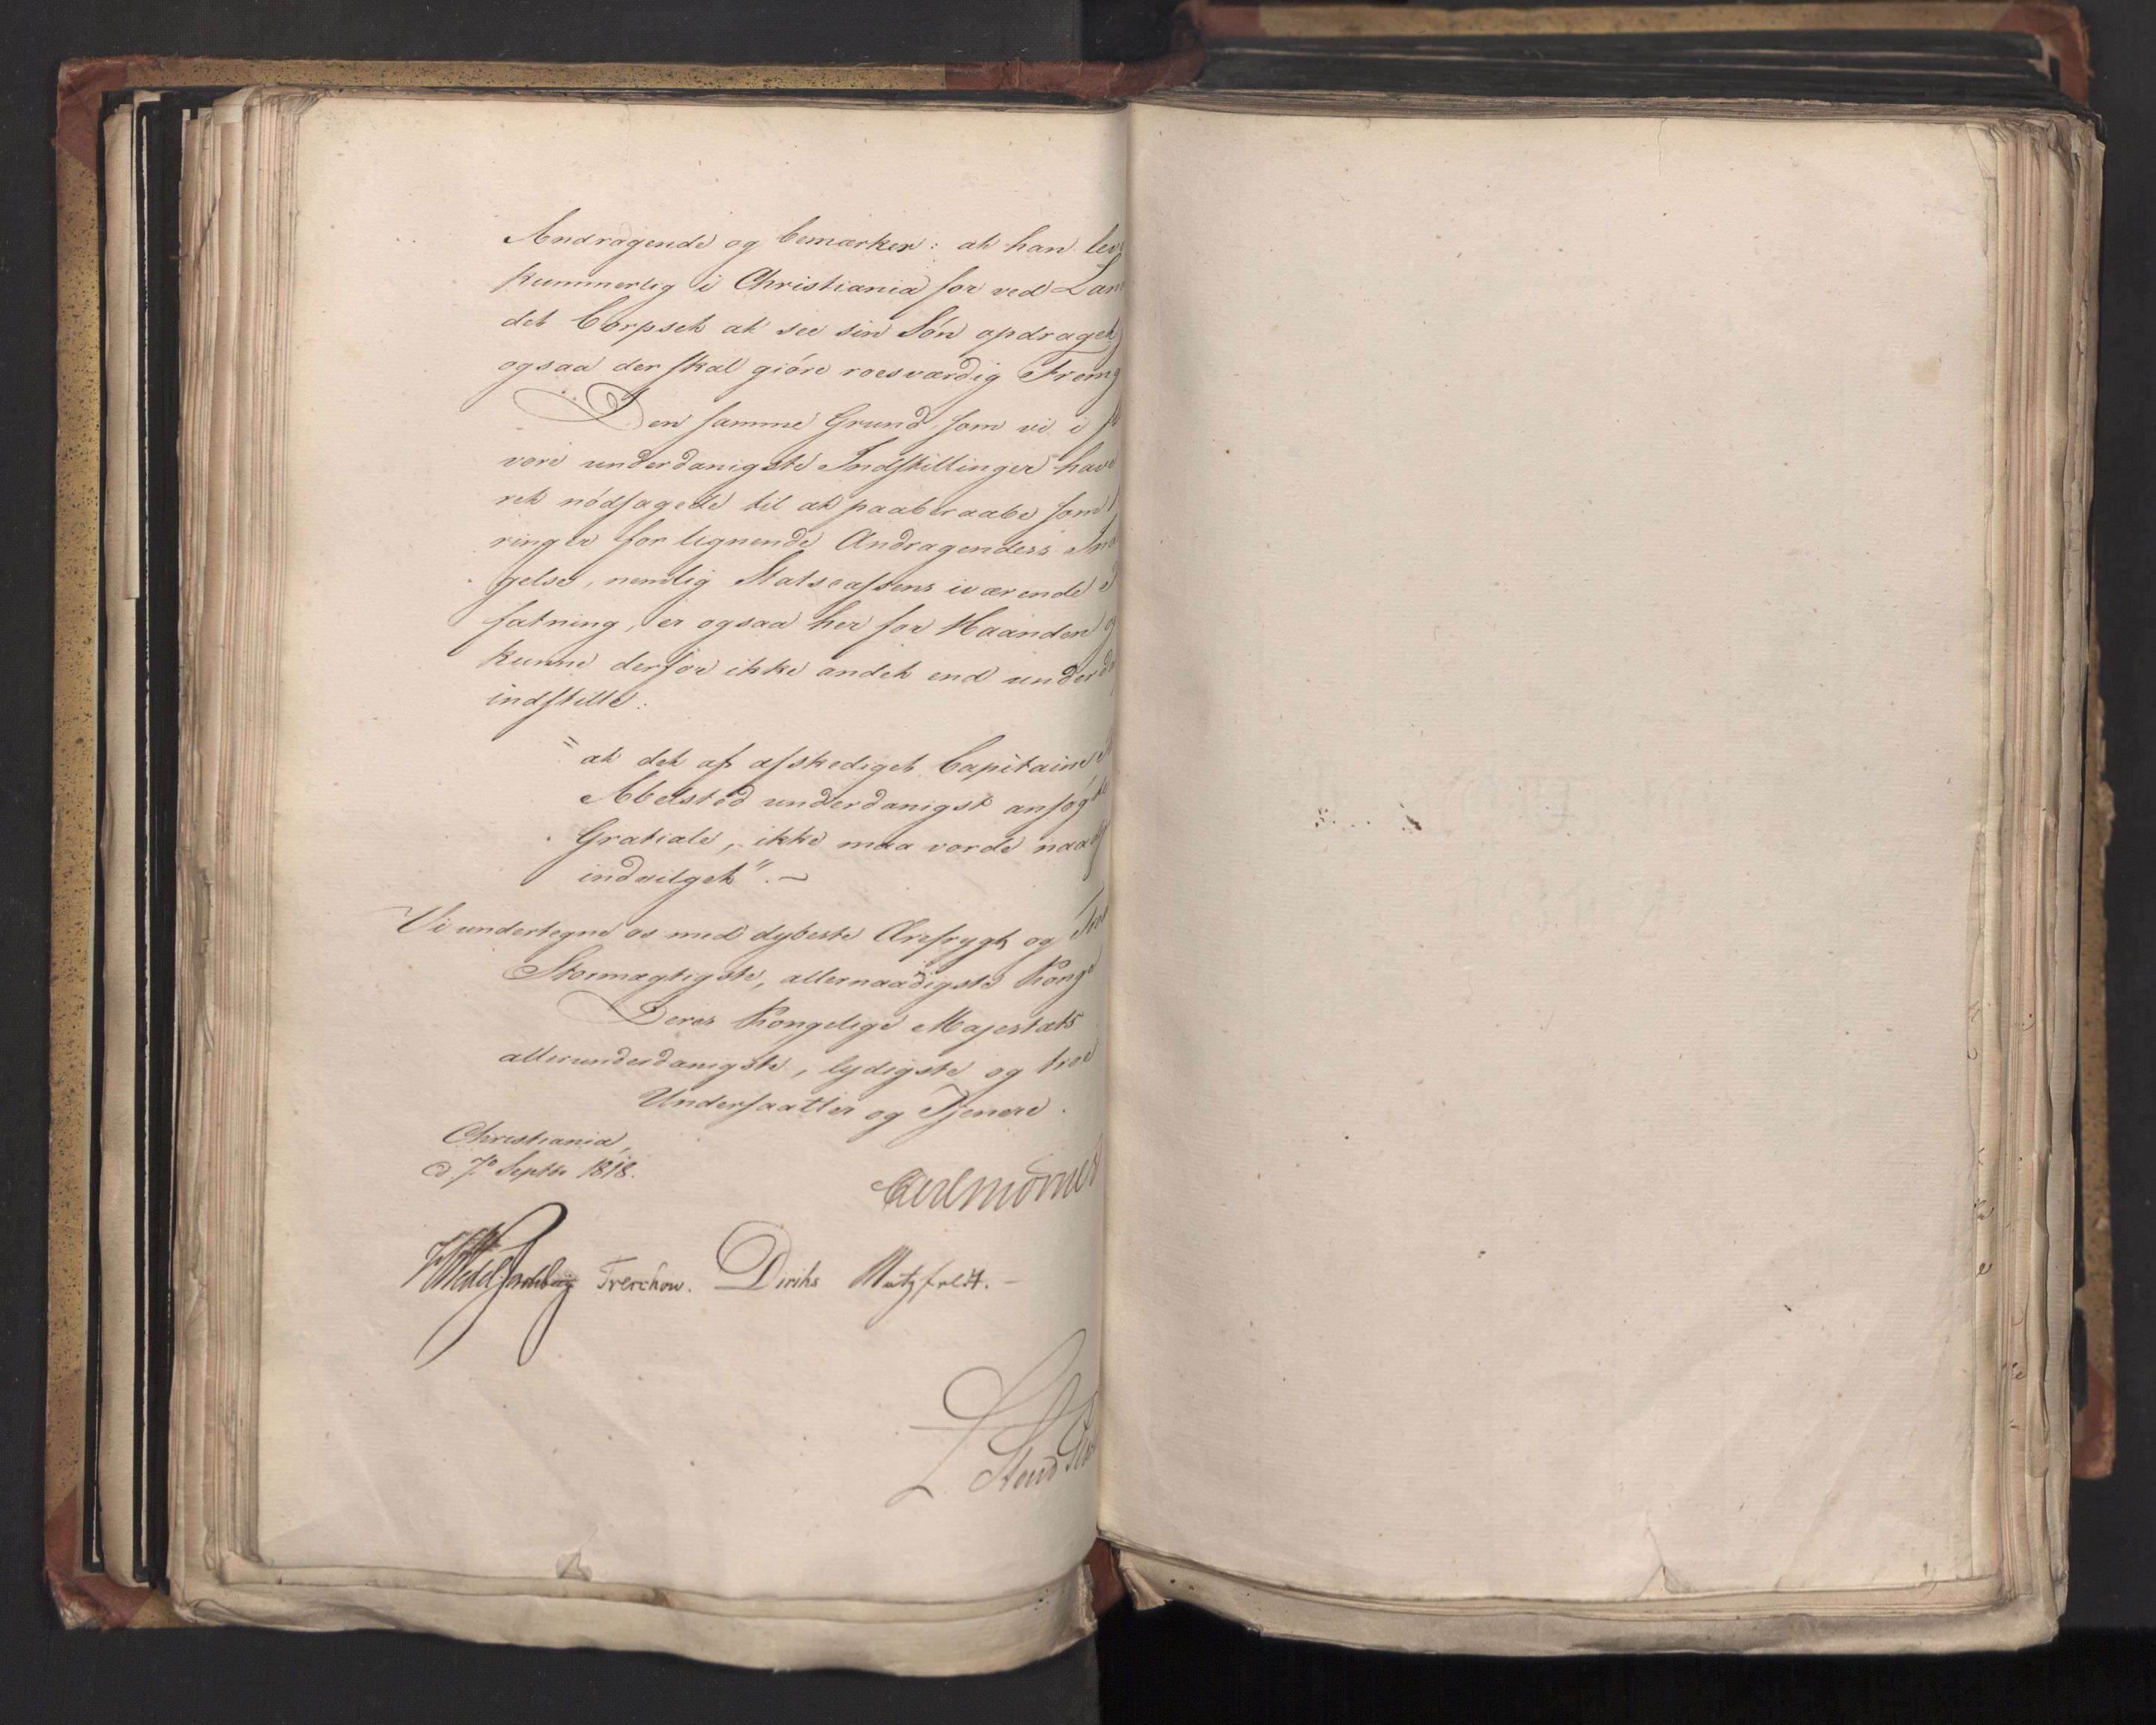 Andragende og bemærker: at han lev
kummerlig i Christiania for ved Lan
det Corpset at see sin Søn opdraget,
ogsaa der skal giøre roesværdig Fremg
Den samme Grund, som vi i
vore underdanigste Indstillinger have
ret nødsagede til at paaberaabe som
ringer for lignende Andragenders Ind
gelse, nemlig Statscassens iværende
fatning, er ogsaa her for Haanden og
kunne derfor ikke andet end underda
indstille:
"at det af afskediget Capitaine
Abelsted underdanigst ansøgte
Gratiale, ikke maa vorde naad
indvilget".-
Vi undertegne os med dybeste Ærefrygt og Tros
Stormægtigste, allernaadigste Konge
Deres Kongelige Majestæts
allerunderdanigste, lydigste og troe
Undersaatter og Tjenere.
Christiania,
d 7de Septbr 1818.
Carl Mörner
Wedel Jarlsberg Treschow. Diriks Motzfeldt.-